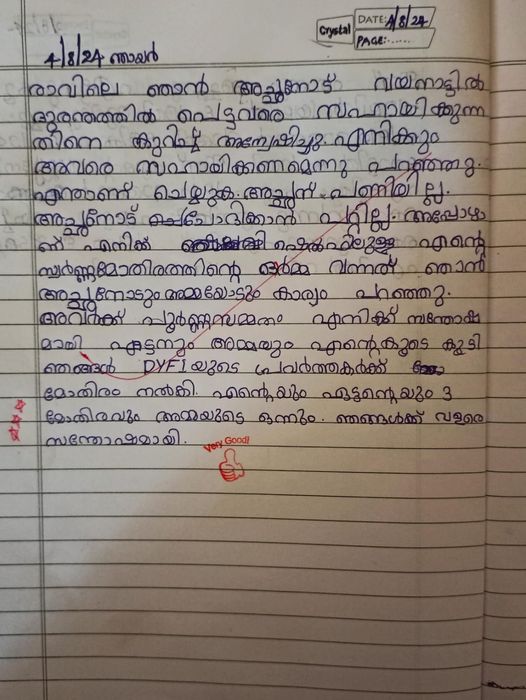 Crystal
DATE: 4/8/24
PAGE:......
4/8/24 ഞായർ
രാവിലെ ഞാൻ അച്ഛനോട് വയനാട്ടിൽ
ദുരന്തത്തിൽ പെട്ടവരെ സഹായിക്കുന്ന
തിനെ കുറിച്ച് അന്വേഷിച്ചു. എനിക്കും
അവരെ സഹായിക്കണമെന്നു പറഞ്ഞു.
എന്താണ് ചെയ്യുക. അച്ഛന് പണിയില്ല.
അച്ഛനോട് ചോദിക്കാൻ പറ്റില്ല. അപ്പോഴാ
ണ് എനിക്ക് ഷെൽഫിലുള്ള എന്റെ
സ്വർണ്ണമോതിരത്തിന്റെ ഓർമ്മ വന്നത് ഞാൻ
അച്ഛനോടും അമ്മയോടും കാര്യം പറഞ്ഞു.
അവർക്ക് പൂർണ്ണസമ്മതം എനിക്ക് സന്തോഷ
മായി ഏട്ടനും അമ്മയും എന്റെകൂടെ കൂടി
ഞങ്ങൾ DYFI യുടെ പ്രവർത്തകർക്ക്
മോതിരം നൽകി. എന്റെയും ഏട്ടന്റെയും 3
മോതിരവും അമ്മയുടെ ഒന്നും. ഞങ്ങൾക്ക് വളരെ
സന്തോഷമായി.
Very Good!